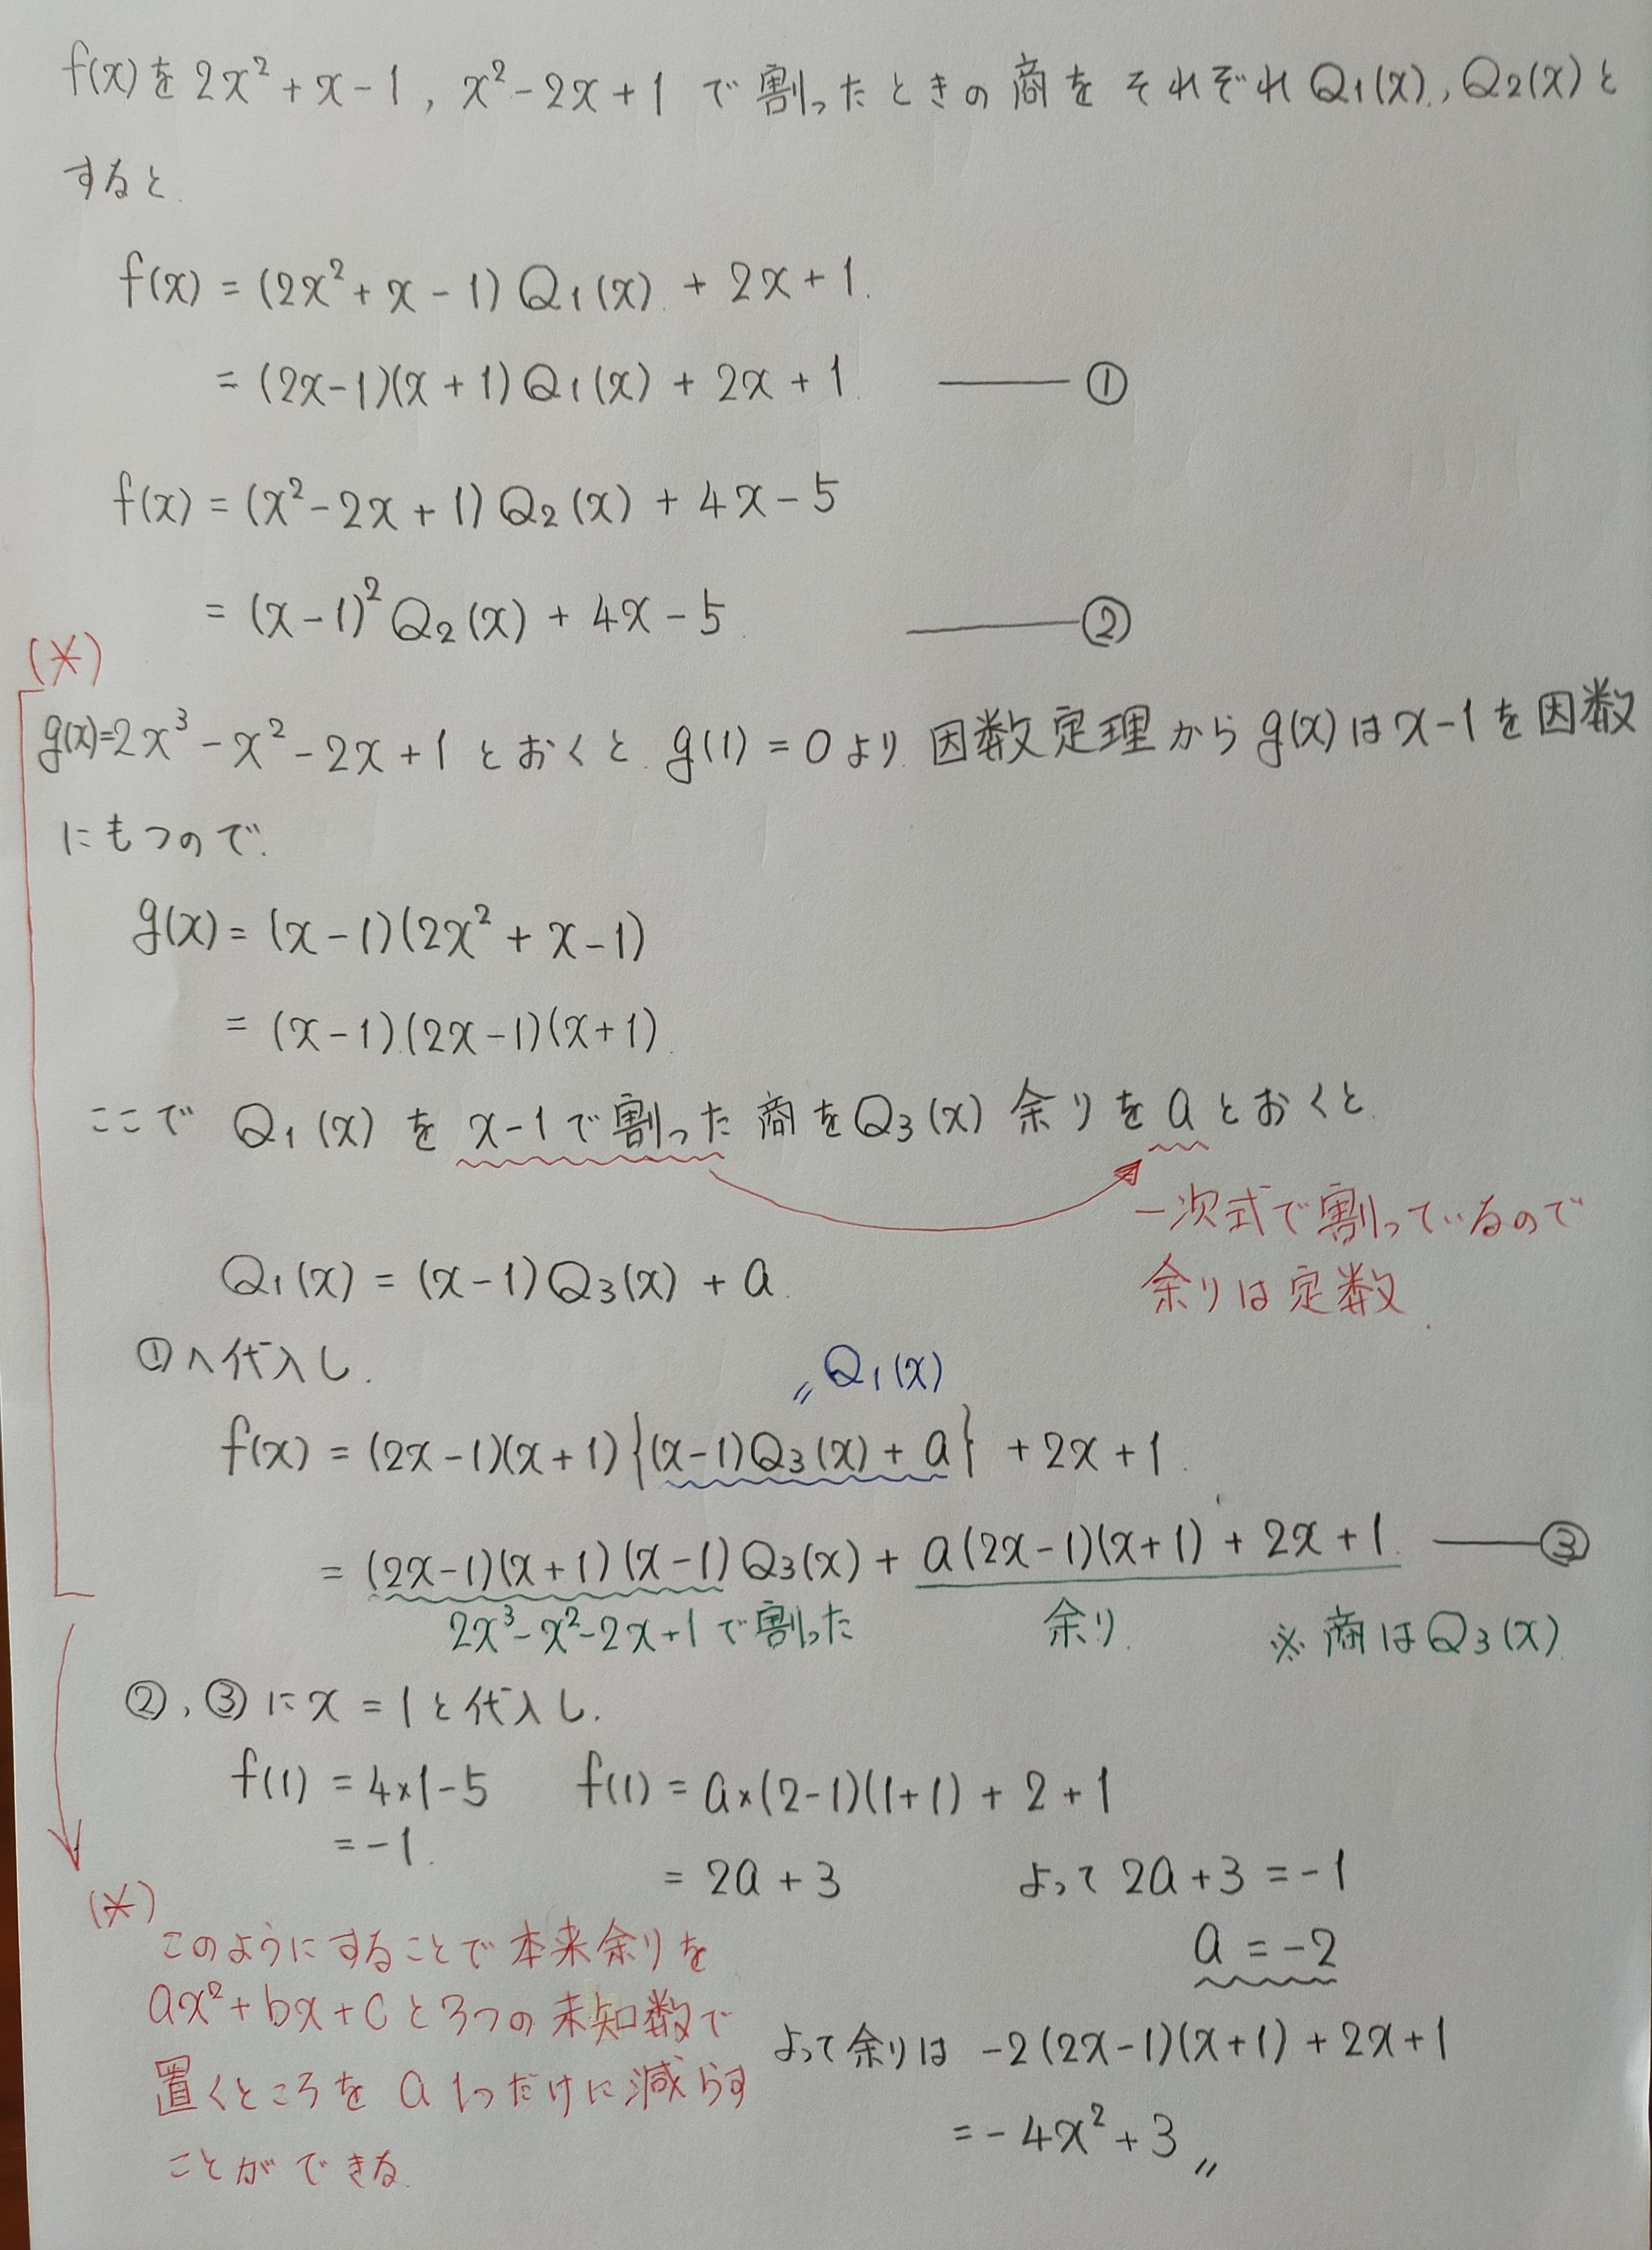 f(x)を2x²+x-1, x²-2x+1 で割ったときの商をそれぞれQ₁(x), Q₂(x)と
すると
f(x) = (2x²+x-1)Q₁(x) + 2x+1
= (2x-1)(x+1)Q₁(x) + 2x+1 ―①
f(x) = (x²-2x+1)Q₂(x) + 4x-5
= (x-1)²Q₂(x) + 4x-5 ―②
(*)
g(x)=2x³-x²-2x+1 とおくと g(1)=0より 因数定理からg(x)はx-1を因数
にもつので
g(x) = (x-1)(2x²+x-1)
= (x-1)(2x-1)(x+1)
ここで Q₁(x)を x-1で割った 商をQ₃(x) 余りをaとおくと
一次式で割っているので
余りは定数
Q₁(x) = (x-1)Q₃(x) + a
①へ代入し
〃Q₁(x)
f(x) = (2x-1)(x+1){(x-1)Q₃(x)+a} + 2x+1
= (2x-1)(x+1)(x-1)Q₃(x) + a(2x-1)(x+1) + 2x+1 ―③
2x³-x²-2x+1で割った 余り ※商はQ₃(x)
②,③にx=1と代入し
f(1) = 4×1-5 f(1) = a×(2-1)(1+1)+2+1
= -1
= 2a+3 よって 2a+3 = -1
a = -2
(*)
このようにすることで本来余りを
ax²+bx+cと3つの未知数で
置くところを a 1つだけに減らす
ことができる
よって余りは -2(2x-1)(x+1)+2x+1
= -4x²+3 〃